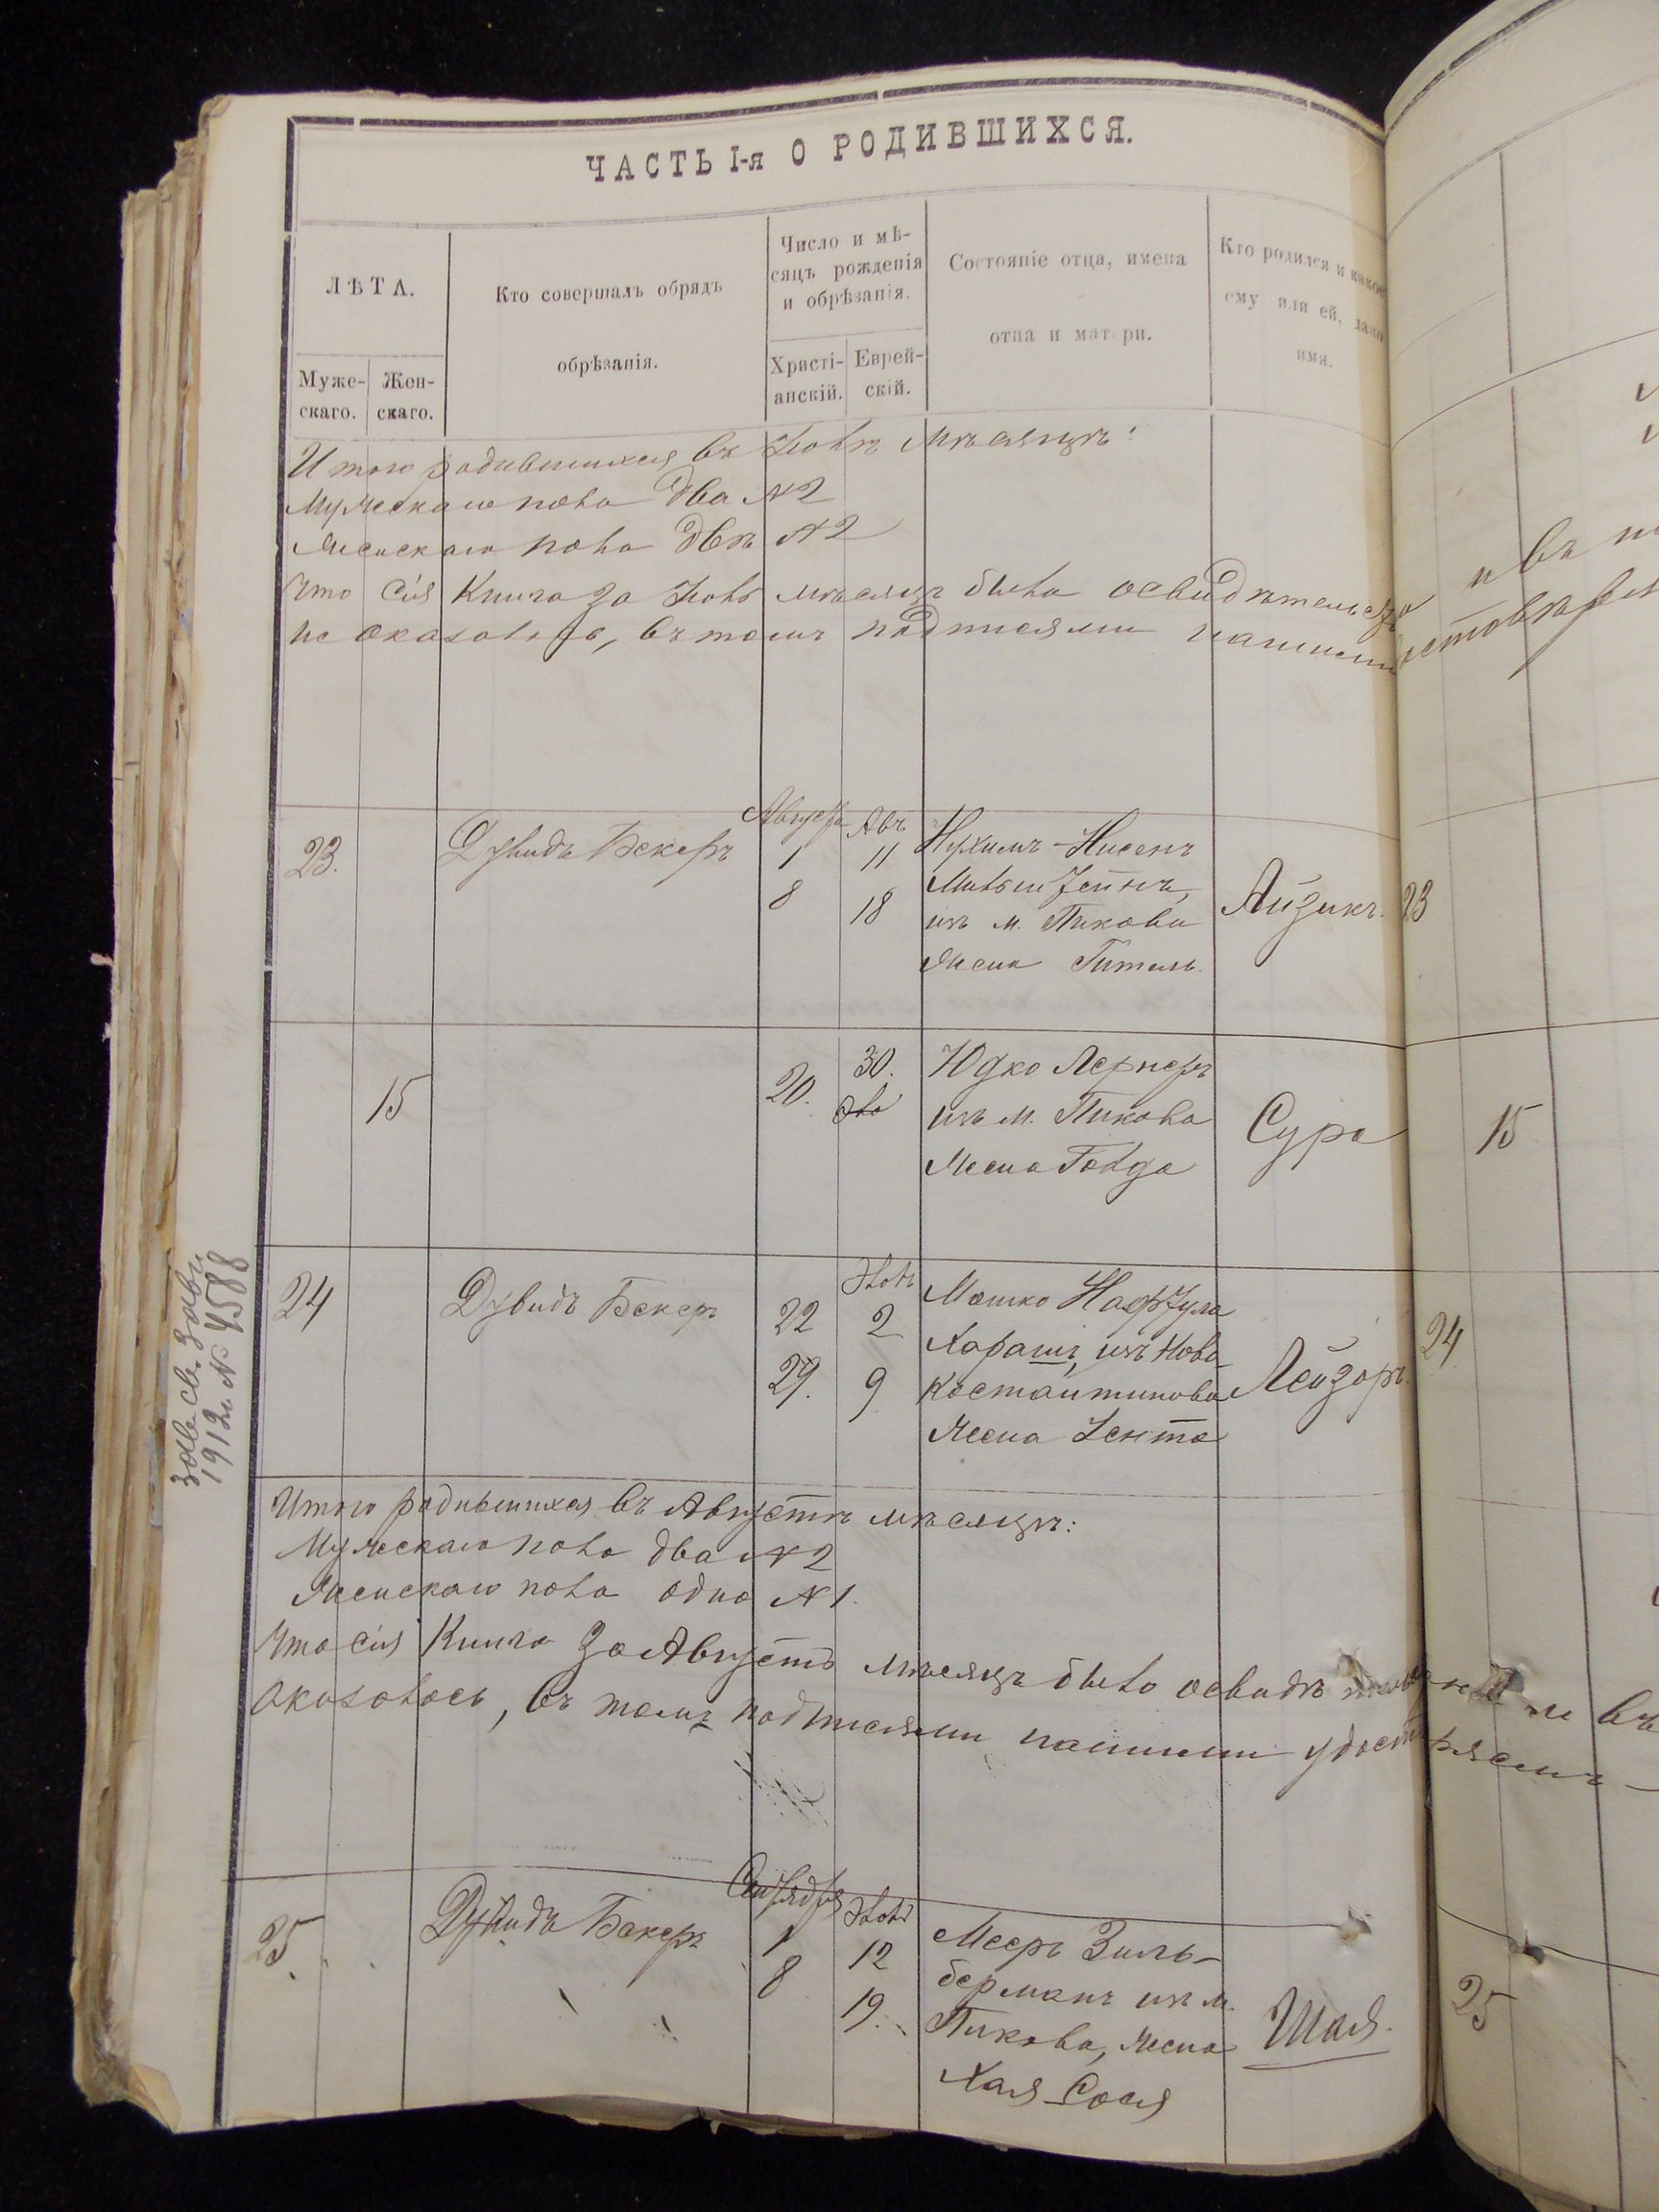 ЧАСТЬ I-я О РОДИВШИХСЯ.
ЛѢТА.
Муже-
скаго.
Жен-
скаго.
Кто совершалъ обрядъ
обрѣзанія.
Число и мѣ-
сяцъ рожденія
и обрѣзанія.
Христі-
анскій.
Еврей-
скій.
Состояніе отца, имена
отца и матери.
Кто родился и какое
ему или ей, дано
имя.
Итого родившихся въ Іюлѣ мѣсяцѣ:
Мужескаго пола два № 2
Женскаго пола двѣ № 2
Что сія Книга за Іюль мѣсяцъ была
не оказалось, въ томъ подписями нашими
23.
Дувидъ Бекеръ
Августа
1
8
Авъ
11
18
Нухимъ-Нисенъ
изъ м. Пикова
жена Гитель.
Айзикъ.
23
15
20.
30.
Юдко Лернеръ
изъ м. Пикова
Жена Голда
Сура
15
24
Дувидъ Бекеръ
22
29.
Элолъ
2
9
Мошко Нафтула
Харашъ, изъ Ново-
константинова
Жена Іента
Лейзоръ.
24
Итого родившихся въ Августѣ мѣсяцѣ:
Мужескаго пола два № 2
Женскаго пола одна № 1.
Что сія Книга за Августъ мѣсяцъ была
оказалось, въ томъ подписями нашими
25
Дувидъ Бекеръ
Сентября
1
8
Элолъ
12
19.
Мееръ Зиль-
берманъ изъ м.
Пикова, жена
Хая Сося
Шая.
25
1912 г. № 4588